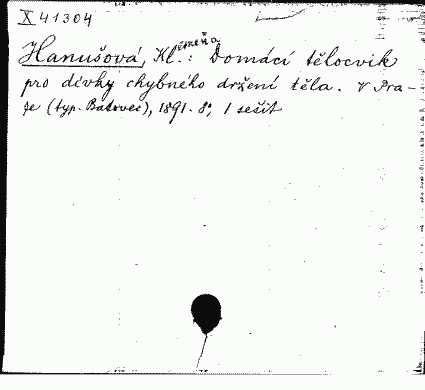 X 41304
Hanušová, Kl.emeňa: Domácí tělocvik
pro dívky chybného držení těla. V Pra-
ze (typ. Batovec), 1891. 8°, 1 sešit